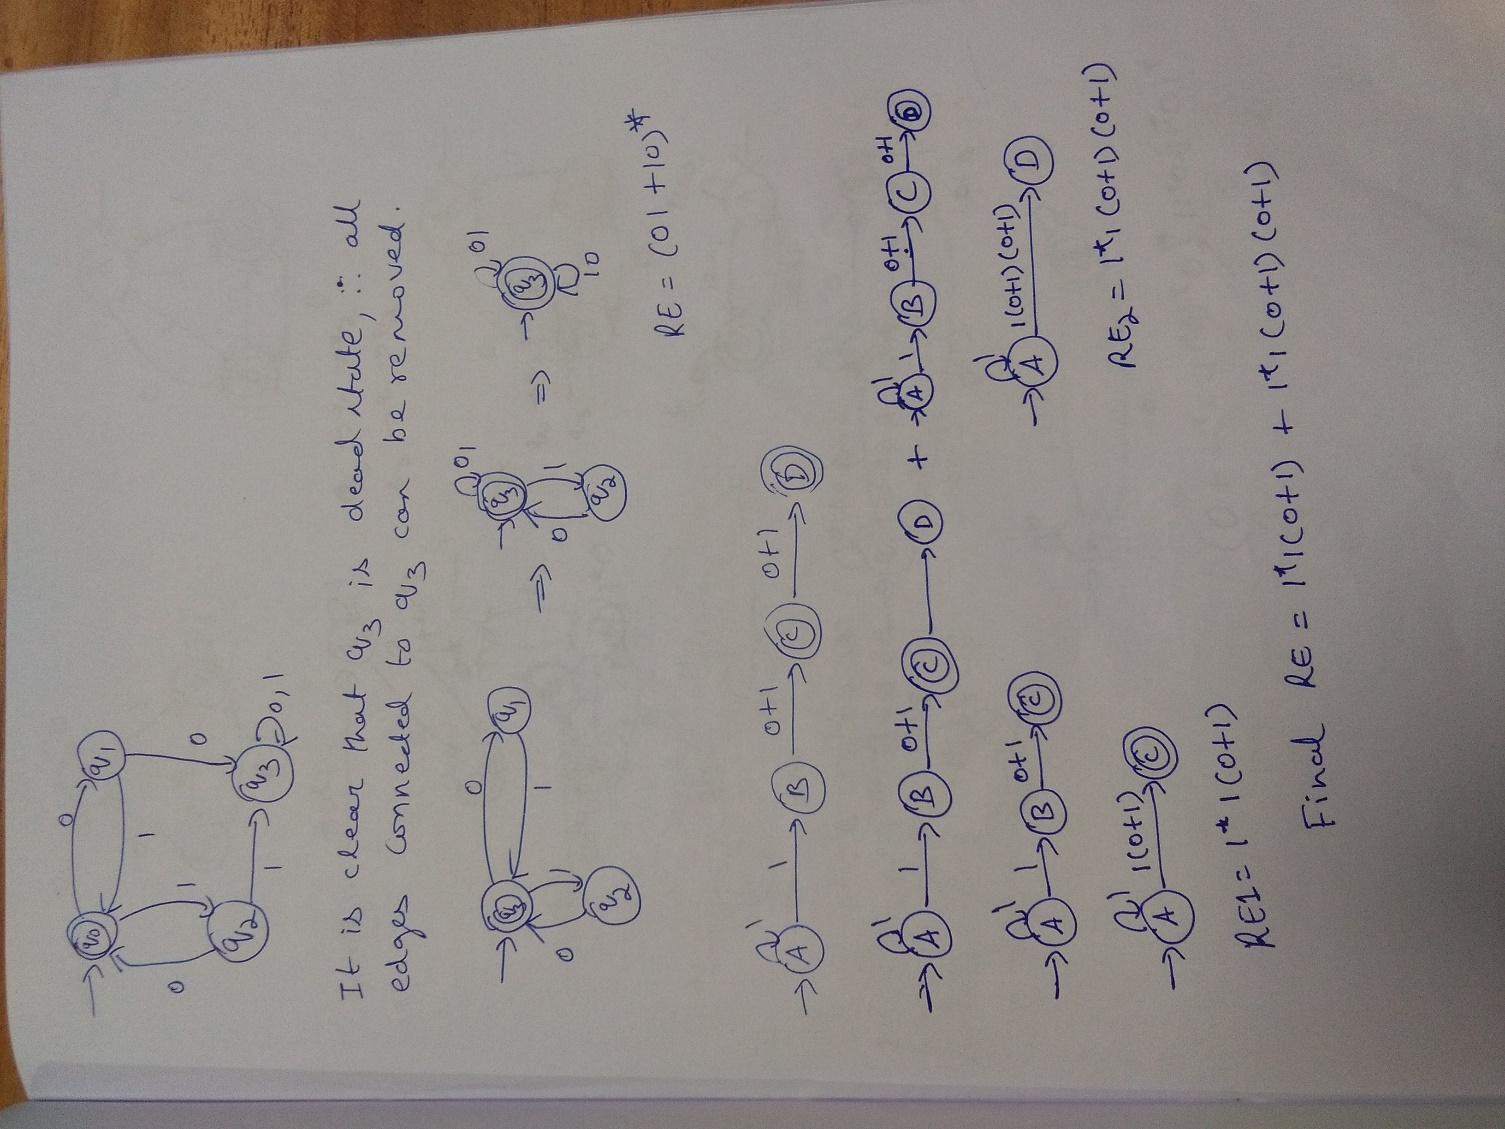 0
q0 q1
1
1 0
0
q2 q3 0,1
1
It is clear that q3 is dead state, ∴ all
edges connected to q3 can be removed.
0
q1
1
0 1
q2
=>
01
q3
0 1
q2
=>
01
q3
10
RE = (01+10)*
1
A 1 B 0+1 C 0+1 D
1
A 1 B 0+1 C D + 1 A 1 B 0+1 C 0+1 D
1
A 1 B 0+1 C
1
A 1(0+1)(0+1) D
1
A 1(0+1) C
RE2 = 1*1(0+1)(0+1)
RE1 = 1*1(0+1)
Final RE = 1*1(0+1) + 1*1(0+1)(0+1)